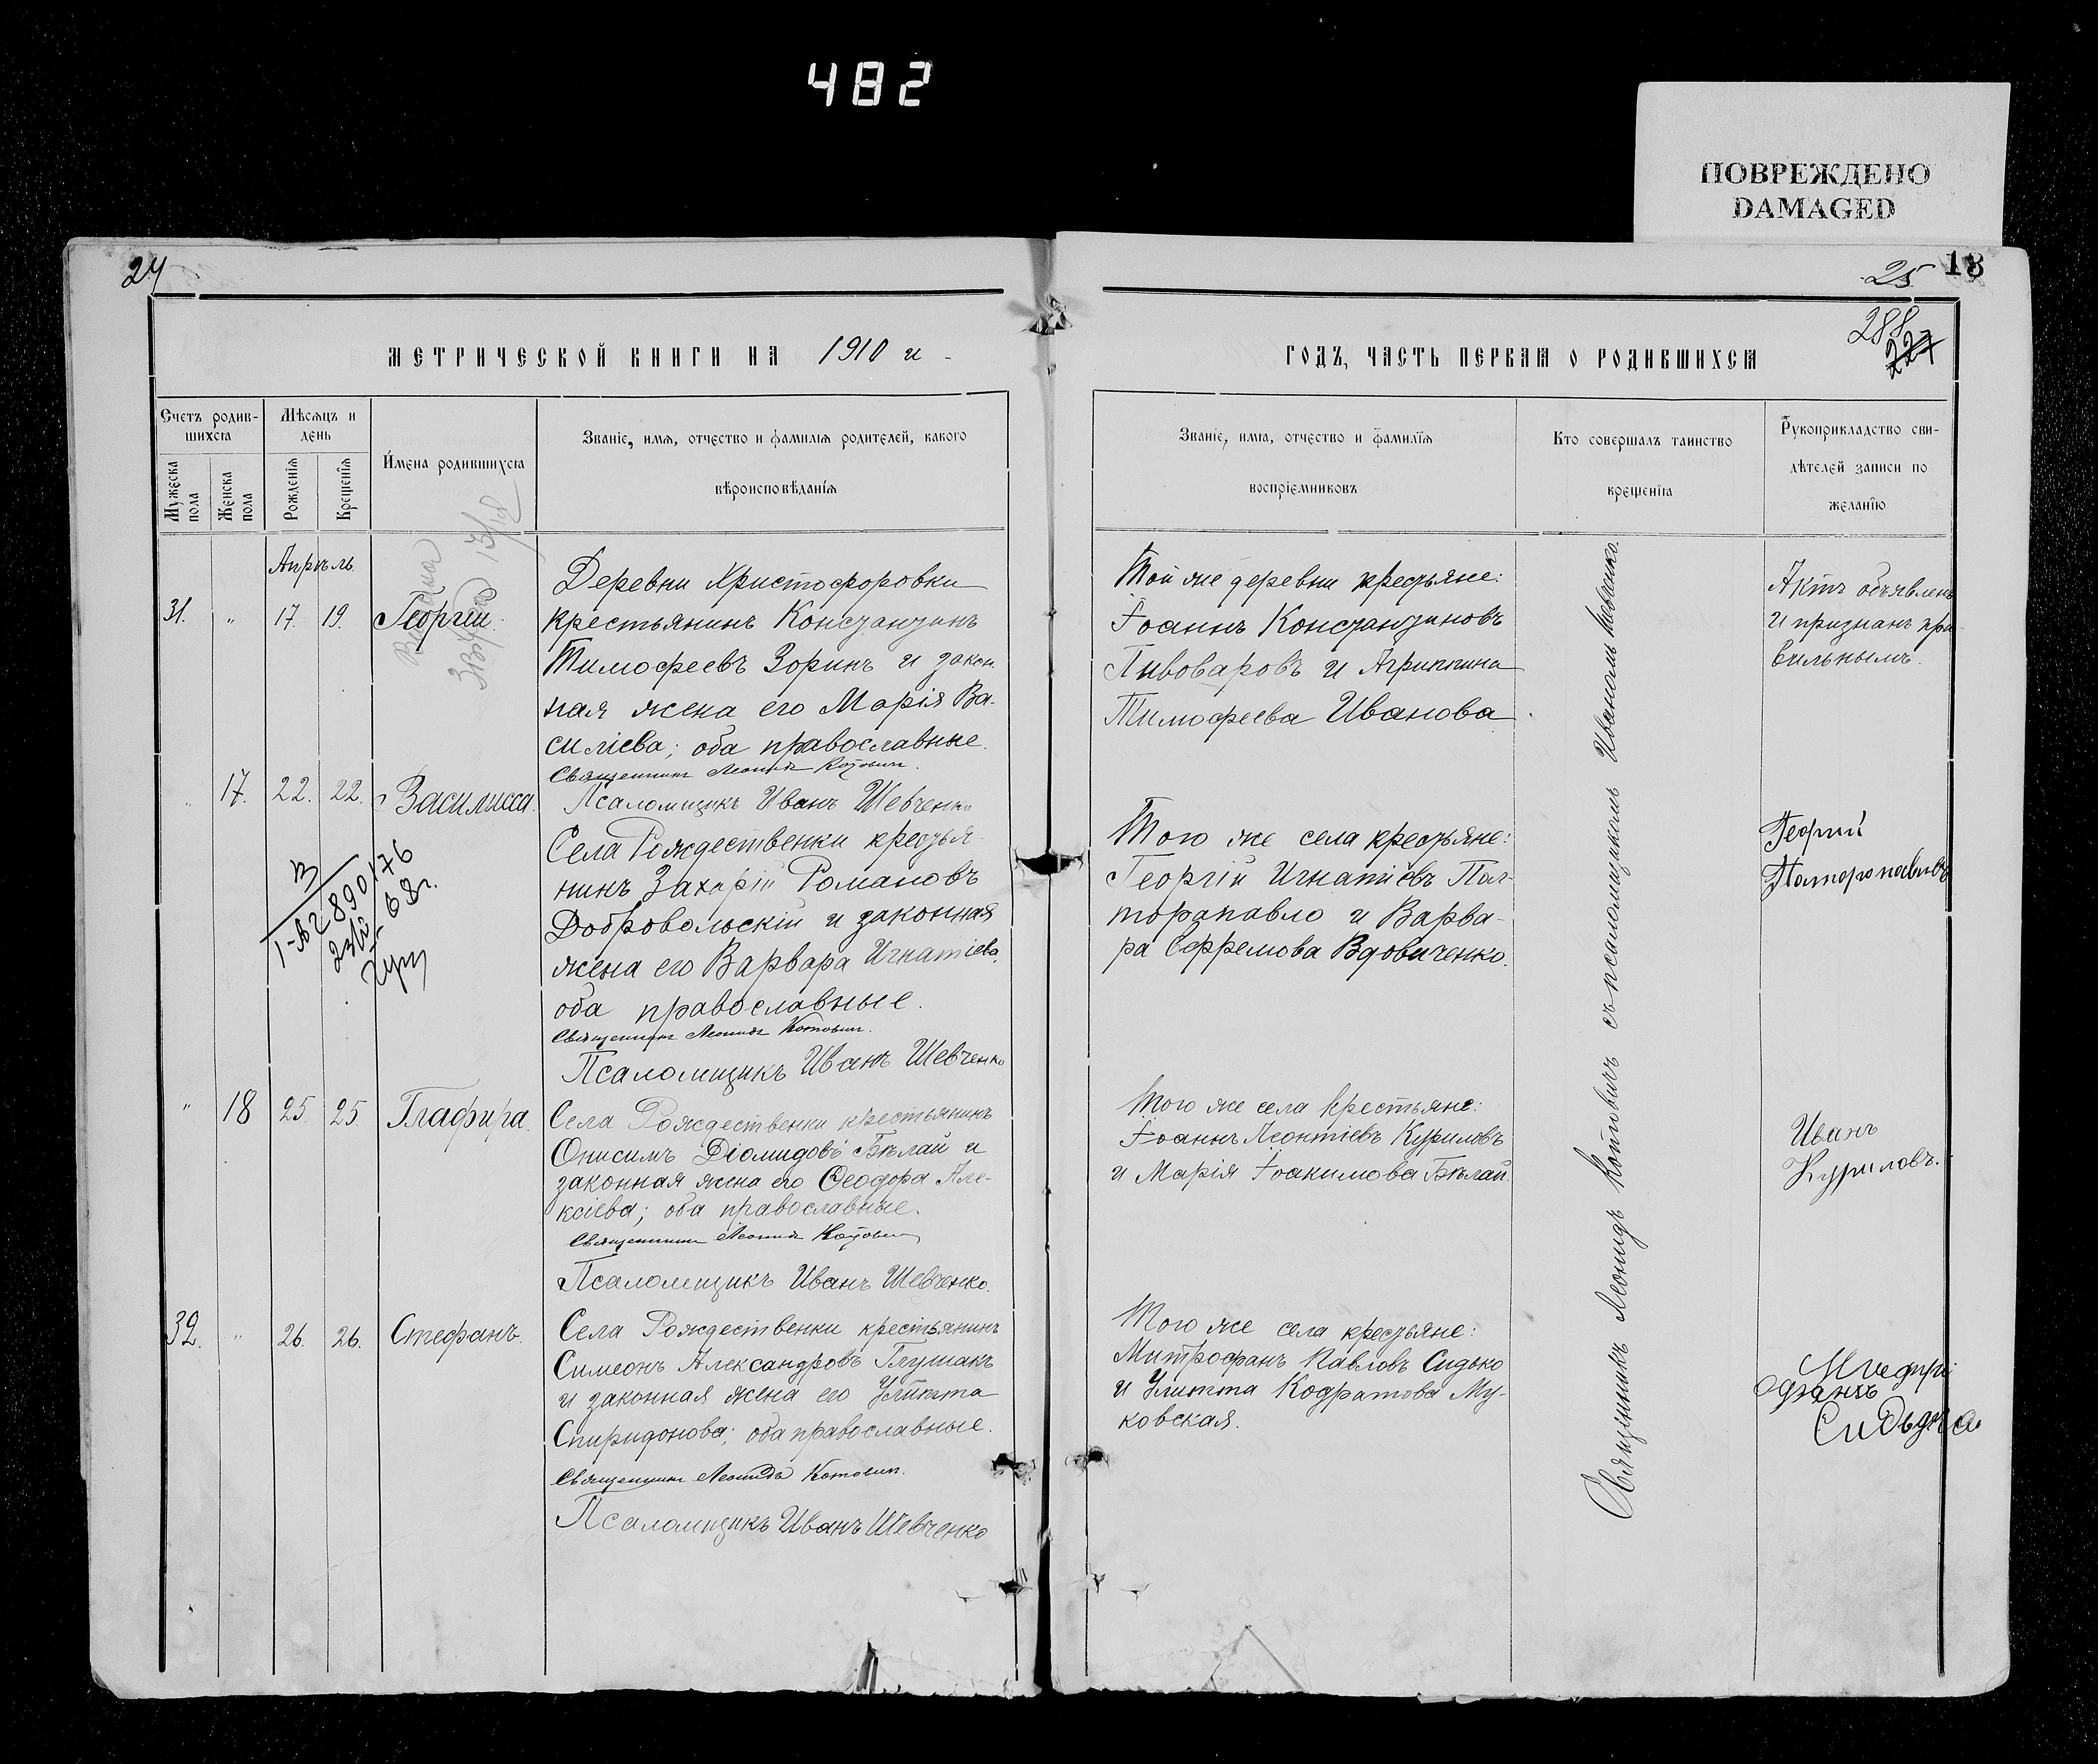 482
ПОВРЕЖДЕНО
DAMAGED
24
МЕТРИЧЕСКОЙ КНИГИ НА 1910 й
Счетъ родив-
шихся
Мужеска пола
Женска пола
Мѣсяцъ и
день
Рожденія
Крещенія
Имена родившихся
Званіе, имя, отчество и фамилія родителей, какого
вѣроисповѣданія
Апрѣль
31. " 17. 19. Георгій.
Деревни Христофоровки
крестьянинъ Константинъ
Тимофеевъ Зоринъ и закон
ная жена его Марія Ва-
силіева; оба православные.
Священникъ Леонидъ Котовичъ.
Псаломщикъ Иванъ Шевченко
" 17. 22. 22. Василисса.
Села Рождественки крестья
нинъ Захарій Романовъ
Добровольскій и законная
жена его Варвара Игнатіева,
оба православные.
Священникъ Леонидъ Котовичъ.
Псаломщикъ Иванъ Шевченко
" 18 25. 25. Глафира.
Села Рождественки крестьянинъ
Онисимъ Діомидовъ Бѣлай и
законная жена его Ѳеодора Але-
ксіева; оба православные.
Священникъ Леонидъ Котовичъ
Псаломщикъ Иванъ Шевченко.
32. " 26. 26. Стефанъ.
Села Рождественки крестьянинъ
Симеонъ Александровъ Глушакъ
и законная жена его Улитта
Спиридонова; оба православные.
Священникъ Леонидъ Котовичъ.
Псаломщикъ Иванъ Шевченко
25
18
288
227
ГОДЪ, ЧАСТЬ ПЕРВАЯ О РОДИВШИХСЯ
Званіе, имя, отчество и фамилія
воспріемниковъ
Кто совершалъ таинство
крещенія
Рукоприкладство сви-
дѣтелей записи по
желанію
Той же деревни крестьяне:
Іоаннъ Константиновъ
Пивоваровъ и Агриппина
Тимофеева Иванова.
Актъ объявленъ
и признанъ пра
вильнымъ.
Того же села крестьяне:
Георгій Игнатіевъ Пол-
торапавло и Варва-
ра Ефремова Вдовиченко.
Георгий
Того же села крестьяне:
Іоаннъ Леонтіевъ Куриловъ
и Марія Іоакимова Бѣлай.
Иванъ
Куриловъ.
Того же села крестьяне:
Митрофанъ Павловъ Сидько
и Улитта Кодратова Му-
ковская.
Священникъ Леонидъ Котовичъ съ псаломщикомъ Иваномъ Шевченко.